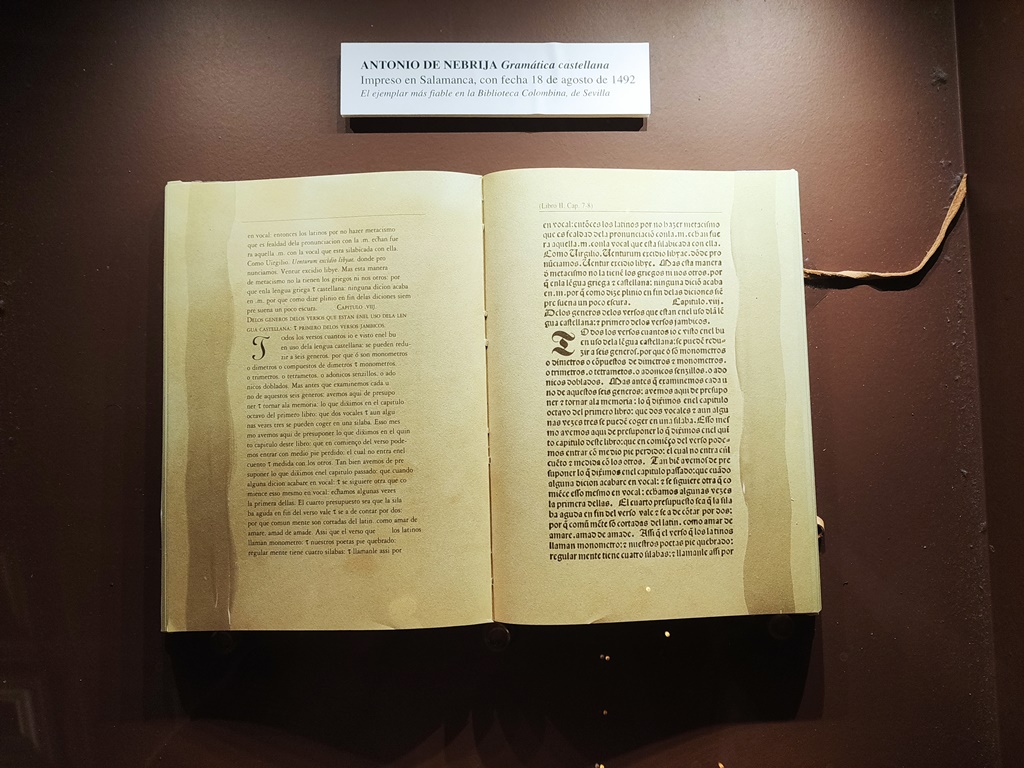 ANTONIO DE NEBRIJA Gramática castellana
Impreso en Salamanca, con fecha 18 de agosto de 1492
El ejemplar más fiable en la Biblioteca Colombina, de Sevilla
en vocal: entonces los latinos por no hazer metacismo
que es fealdad dela pronunciacion con la .m. echan fue
ra aquella .m. con la vocal que esta silabicada con ella.
Como Uirgilio. Uenturum excidio libyae. donde pro
nunciamos. Ventur excidio libye. Mas esta manera
de metacismo no la tienen los griegos ni nos otros: por
que enla lengua griega τ castellana: ninguna dicion acaba
en .m. por que como dize plinio en fin delas diciones siem
pre suena un poco escura. CAPITULO .VIIJ.
DELOS GENEROS DELOS VERSOS QUE ESTAN ENEL USO DELA LEN
GUA CASTELLANA: τ PRIMERO DELOS VERSOS JAMBICOS.
Todos los versos cuantos io e visto enel bu
en uso dela lengua castellana: se pueden redu-
zir a seis generos. por que ó son monometros
o dimetros o compuestos de dimetros τ monometros.
o trimetros. o tetrametos. o adonicos senzillos. o ado
nicos doblados. Mas antes que examinemos cada u
no de aquestos seis generos: avemos aqui de presupo
ner τ tornar ala memoria: lo que diximos en el capitulo
octavo del primero libro: que dos vocales τ aun algu
nas vezes tres se pueden coger en una silaba. Esso mes
mo avemos aqui de presuponer lo que diximos en el quin
to capitulo deste libro: que en començo del verso pode-
mos entrar con medio pie perdido; el cual no entra enel
cuento τ medida con los otros. Tan bien avemos de pre
suponer lo que diximos enel capitulo passado: que cuando
alguna dicion acabare en vocal: τ se siguiere otra que co
mience esso mesmo en vocal: echamos algunas vezes
la primera dellas. El cuarto presupuesto sea que la sila
ba aguda en fin del verso vale τ se a de contar por dos:
por que comun mente son cortadas del latin. como amar de
amare. amad de amade. Assi que el verso que los latinos
llaman monometro: τ nuestros poetas pie quebrado:
regular mente tiene cuatro silabas: τ llamanle assi por
(Libro II, Cap. 7-8)
en vocal: entõces los latinos por no hazer metacismo
que es fealdad dela pronunciació conla .m. echan fue
ra aquella .m. conla vocal que esta silabicada con ella.
Como Uirgilio. Uenturum excidio libyae. dõde pro
nũciamos. Uentur excidio libye. Mas esta manera
ð metacismo no la tienẽ los griegos ni nos otros. por
q̃ enla lẽgua griega ꝛ castellana: ninguna dició acaba
en .m. por q̃ como dize plinio en fin delas diciones siẽ
pre suena un poco escura. Capitulo .viij.
Delos generos delos versos que estan enel uso dla lẽ
gua castellana: ꝛ primero delos versos jambicos.
TO dos los versos cuantos io e visto enel bu
en uso dela lengua castellana: se puedẽ redu-
zir a seis generos. por que ó sõ monometros
o dimetros o cõpuestos de dimetros ꝛ monometros.
o trimetros. o tetrametos. o adonicos senzillos. o ado
nicos doblados. Mas antes q̃ examinemos cada u
no de aquestos seis generos: avemos aqui de presupo
ner ꝛ tornar ala memoria: lo q̃ diximos enel capitulo
octavo del primero libro: que dos vocales ꝛ aun algu
nas vezes tres se puedẽ coger en una silaba. Esso mes
mo avemos aqui de presuponer lo q̃ diximos enel quí
to capitulo deste libro: que en comiẽço del verso pode-
mos entrar cõ medio pie perdido: el cual no entra enl
cuẽto ꝛ medida cõ los otros. Tan biẽ avemos de pre
suponer lo q̃ diximos enel capitulo passado: que cuãdo
alguna dicion acabare en vocal: ꝛ se siguiere otra q̃ co
miẽce esso mesmo en vocal: echamos algunas vezes
la primera dellas. El cuarto presupuesto sea q̃ la sila
ba aguda en fin del verso vale ꝛ se a de cõtar por dos:
por q̃ comũ mẽte sõ cortadas del latin. como amar de
amare. amad de amade. Assi q̃ el verso q̃ los latinos
llaman monometro: ꝛ nuestros poetas pie quebrado:
regular mente tiene cuatro silabas: ꝛ llamanle assi por